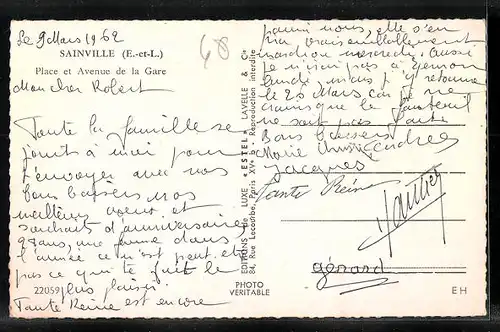 Le 9 Mars 1962
68
SAINVILLE (E.-et-L.)
Place et Avenue de la Gare
Mon cher Robert
Toute la famille se
joints à moi pour
t'envoyer avec nos
bons baisers nos
meilleurs vœux et
souhaits d'anniversaire
ans, une femme dans
l'année ce n'est peut-être
pas ce qui te fait le
plus plaisir
Tante Reine est encore
22059
PHOTO
VERITABLE
EDITIONS de LUXE « ESTEL » LAVELLE & Cie
84, Rue Lecourbe, Paris XVe - Reproduction interdite
parmi nous, elle s'en
ira vraisemblablement
mardi ou mercredi. Aussi
je n'irai pas à Vernon
lundi mais j'y retourne
le 25 Mars, car je ne
crains que le fauteuil
ne soit pas
Bons baisers
Marie Andrée
Jacques
Tante Reine
gérard
EH